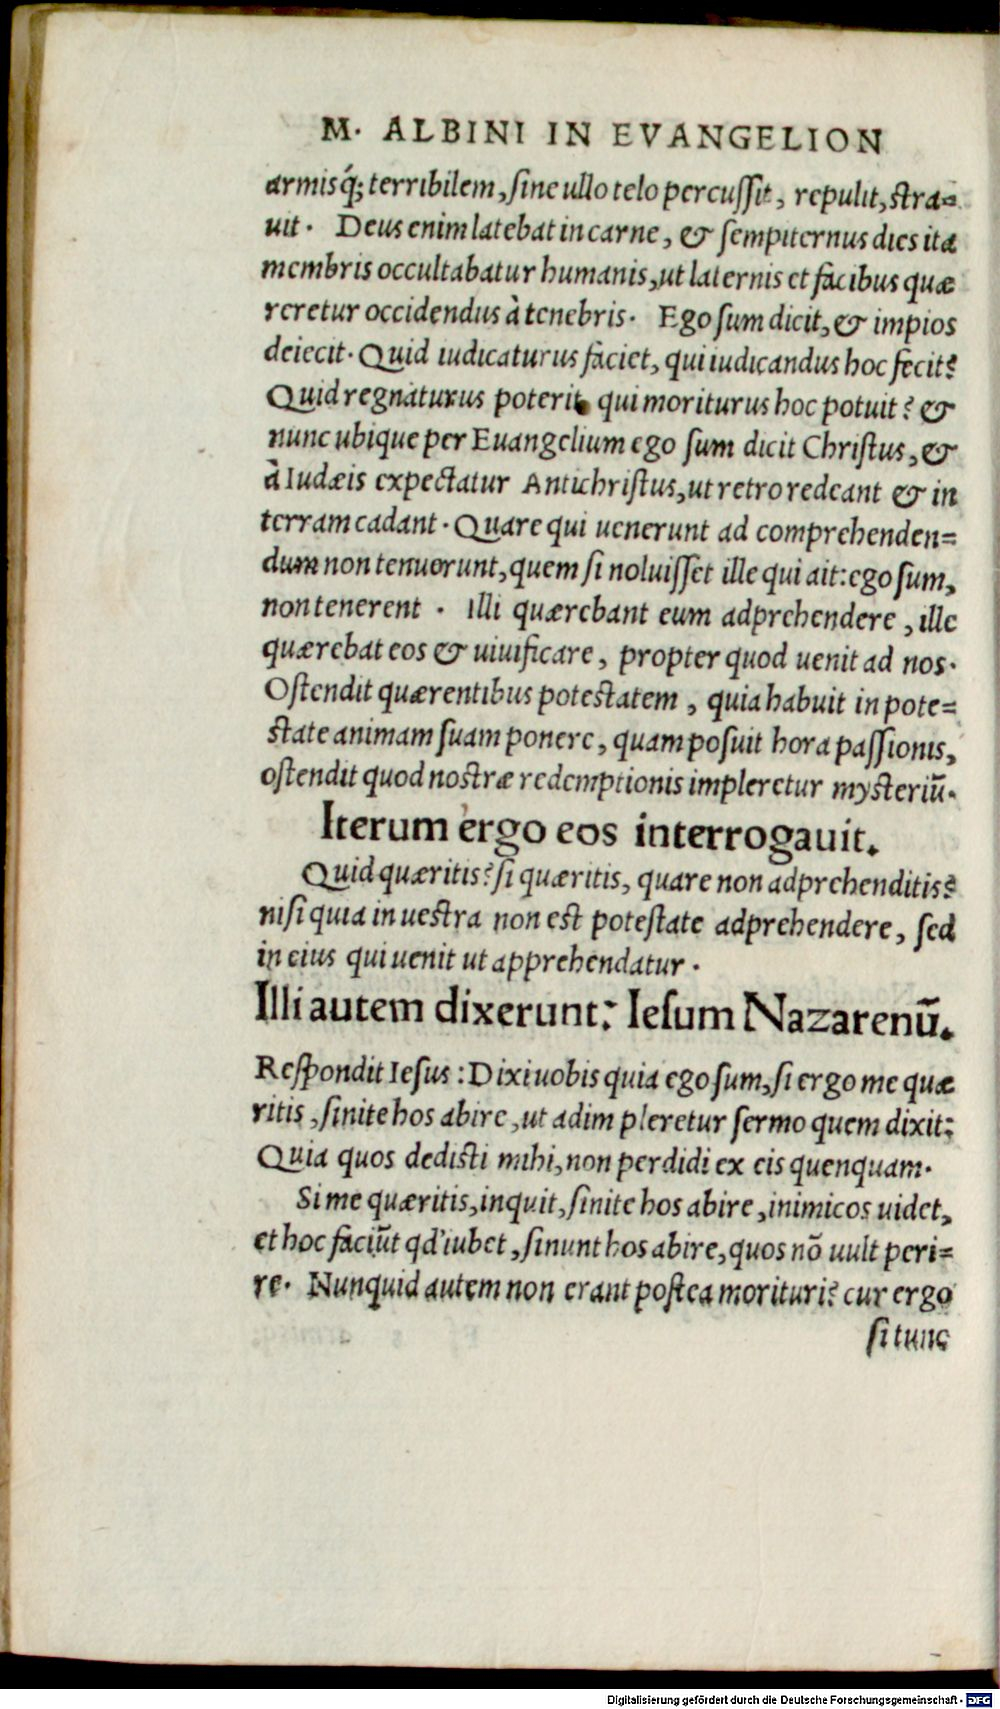 M. ALBINI IN EVANGELION
armisq́; terribilem, ſine ullo telo percuſſit, repulit, ſtra=
uit. Deus enim latebat in carne, & ſempiternus dies ita
membris occultabatur humanis, ut laternis et facibus quæ
reretur occidendus à tenebris. Ego ſum dicit, & impios
deiecit. Quid iudicaturus faciet, qui iudicandus hoc fecit?
Quid regnaturus poterit qui moriturus hoc potuit? &
nunc ubique per Euangelium ego ſum dicit Chriſtus, &
à Iudæis expectatur Antichriſtus, ut retro redeant & in
terram cadant. Quare qui uenerunt ad comprehenden=
dum non tenuerunt, quem ſi noluiſſet ille qui ait: ego ſum,
non tenerent. Illi quærebant eum adprehendere, ille
quærebat eos & uiuificare, propter quod uenit ad nos.
Oſtendit quærentibus poteſtatem, quia habuit in pote=
ſtate animam ſuam ponere, quam poſuit hora paſſionis,
oſtendit quod noſtræ redemptionis impleretur myſteriū.
Iterum ergo eos interrogauit.
Quid quæritis? ſi quæritis, quare non adprehenditis?
niſi quia in ueſtra non eſt poteſtate adprehendere, ſed
in eius qui uenit ut apprehendatur.
Illi autem dixerunt: Ieſum Nazarenū.
Reſpondit Ieſus: Dixi uobis quia ego ſum, ſi ergo me quæ
ritis, ſinite hos abire, ut adimpleretur ſermo quem dixit:
Quia quos dediſti mihi, non perdidi ex eis quenquam.
Si me quæritis, inquit, ſinite hos abire, inimicos uidet,
et hoc faciūt qd' iubet, ſinunt hos abire, quos nō uult peri=
re. Nunquid autem non erant poſtea morituri? cur ergo
ſi tunc
Digitalisierung gefördert durch die Deutsche Forschungsgemeinschaft - DFG